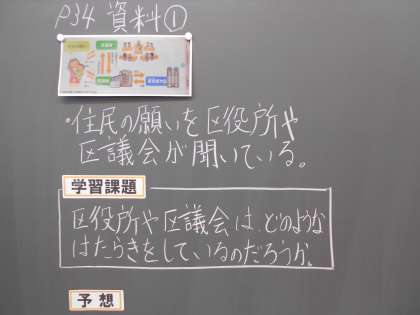 P34 資料①
・住民の願いを区役所や
区議会が聞いている。
学習課題
区役所や区議会は、どのような
はたらきをしているのだろうか。
予想